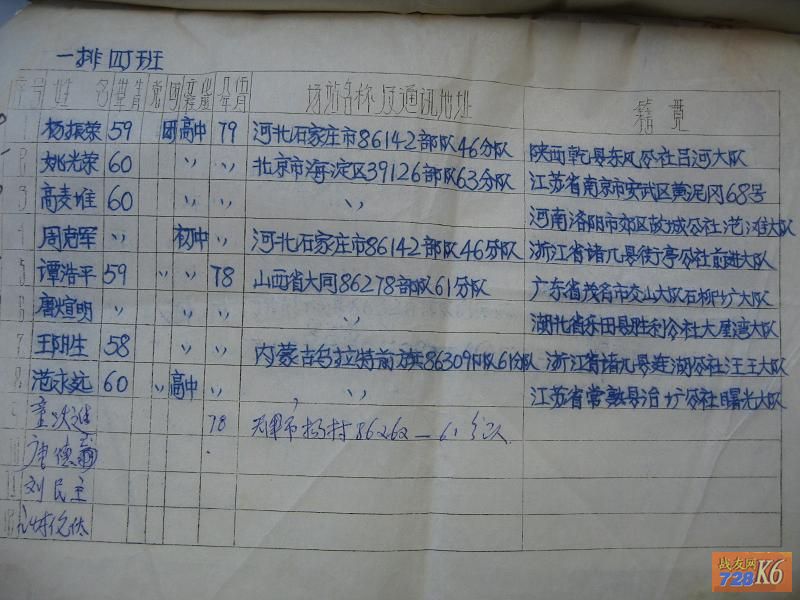 一排四班
序号 姓名 年青 党团 文化 年伍 场站名称及通讯地址 籍贯
1 杨振荣 59 团 高中 79 河北石家庄市86142部队46分队 陕西乾县东风公社吕河大队
2 姚光荣 60 〃 〃 北京市海淀区39126部队63分队 江苏省南京市
3 高麦堆 60 〃 〃 〃 河南洛阳市郊区故城公社
4 周克军 〃 初中 〃 河北石家庄市86142部队46分队 浙江省诸几县街亭公社前进大队
5 谭浩平 59 〃 〃 78 山西省大同86278部队61分队 广东省茂名市
6 唐煊明 〃 〃 〃 〃 湖北省 胜利公社大屋湾大队
7 王阳生 58 〃 〃 内蒙古乌拉特前旗86309部队61分队 浙江省诸几县连湖公社汪王大队
8 范永远 60 〃 高中 〃 〃 江苏省常熟县冶圹公社曙光大队
78 天津市杨村86262—61分队
唐德
刘民主
战友网
728K6